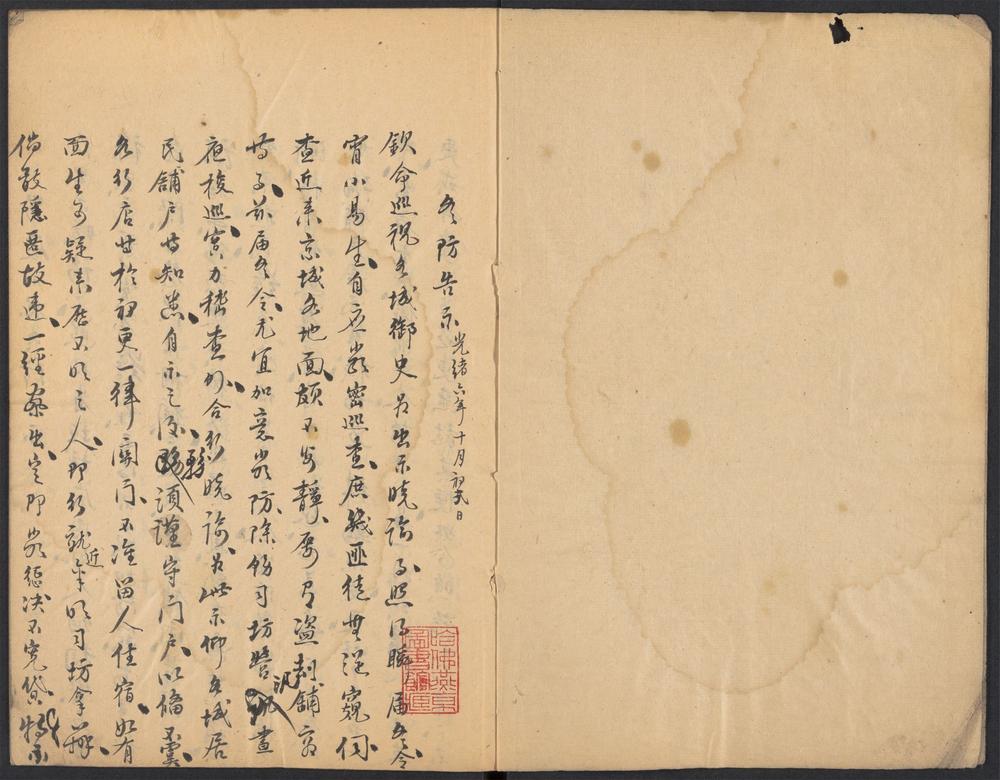 冬防告示光緒六年十月初弍日
欽命巡視各城御史為出示曉諭事照得瞬屆冬令
宵小易生自應嚴密巡查庶幾匪徒無從窺伺
查近來京城各地面頗不安靜屢有盜刦舖户
等事茲屆冬令尤宜加意嚴防除飭司坊營汛晝
夜梭巡實力稽查外合行曉諭為此示仰各城居
民舖户等知悉自示之後務須謹守门户以備不虞
各行店等於初更一律關门不准留人住宿如有
面生可疑來歷不明之人即行就近呈明司坊拿辦
倘敢隱匿故違一經查出定即嚴懲決不寬貸特示
哈佛燕京
圖書館